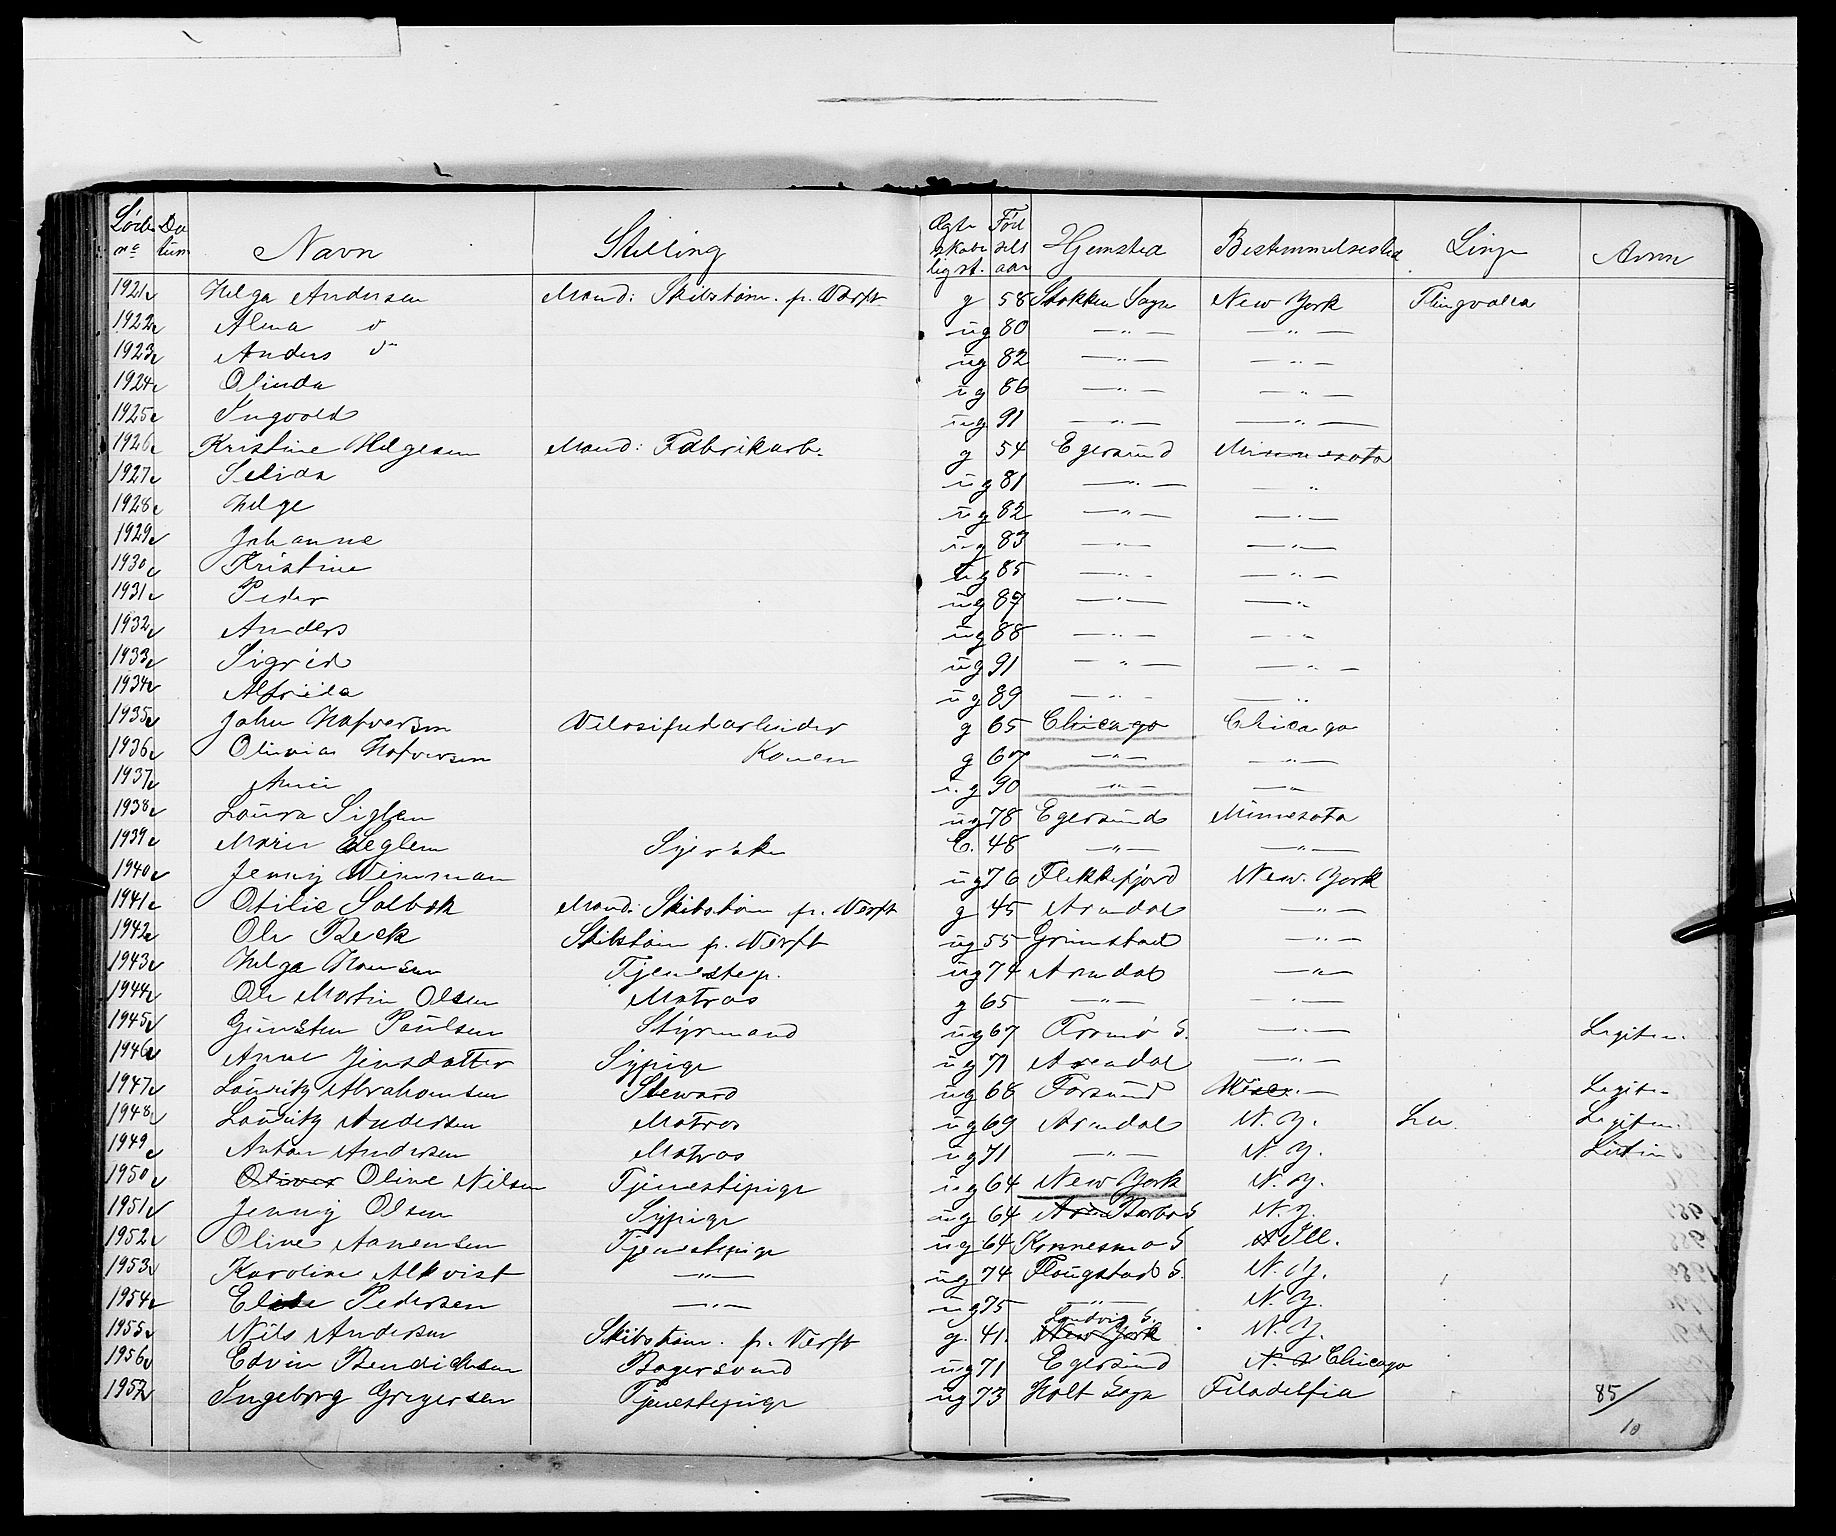 Løbe no Da tum Navn Stilling Ægte skabe lig st. Fød sels aar Hjemsted Bestemmelsessted Linje Anm
1921 Helga Andersen Mand: Skibstøm. p. Værft g 58 Stokken Sogn New York Thingvalla
1922 Alma do ug 80 —"— —"—
1923 Anders do ug 82 —"— —"—
1924 Olinda ug 86 —"— —"—
1925 Ingvald ug 91 —"— —"—
1926 Kristine Helgesen Mand: Fabrikarb. g 54 Egersund Minnesota
1927 Selida ug 81 —"— "
1928 Helge ug 82 —"— —"—
1929 Johanne ug 83 —"— —"—
1930 Kristine ug 85 —"— —"—
1931 Peder ug 87 —"— —"—
1932 Anders ug 88 —"— —"—
1933 Sigrid ug 91 —"— —"—
1934 Alfrida ug 89 —"— —"—
1935 John Hafversen Velosipedarbeider g 65 Chicago Chicago
1936 Olivia Hafversen Konen g 67 —"— —"—
1937 Anni u.g 90 —"— —"—
1938 Laura Siglen ug 78 Egersund Minnesota
1939 Marie Seglem Syerske E. 48 —"— —"—
1940 Jenny Wennman ug 76 Flekkefjord New York
1941 Otilie Solbak Mand: Skibstøm p. Værft g 45 Arendal —"—
1942 Ole Beck Skibstøm p. Værft ug 55 Grimstad —"—
1943 Helga Hansen Tjenestep. ug 74 Arendal —"—
1944 Ole Martin Olsen Matros g 65 —"— —"—
1945 Gunsten Paulsen Styrmand ug 67 Tromø S. —"— Legitim.
1946 Anne Jensdatter Sypige ug 71 Arendal —"—
1947 Lauritz Abrahamsen Steward ug 68 Farsund Legitim.
1948 Lauritz Andersen Matros ug 69 Arendal N. Y. Legitim.
1949 Anton Andersen Matros ug 71 —"— N. Y.
1950 Oliver Olive Nilsen Tjenestepige ug 64 New York N. Y.
1951 Jenny Olsen Sypige ug 64 Aren Barbo S N. Y.
1952 Oline Aanensen Tjenestepige ug 64 Kvinesma S Ill.
1953 Karoline Alkvist —"— ug 74 Flaugstad S. N. Y.
1954 Elise Pedersen —"— ug 75 —"— N. Y.
1955 Nils Andersen Skibstøm. p. Værft g. 41. New York Landvig S. N. Y.
1956 Edvin Bendicksen Bagersvend ug 71 Egersund N. Y Chicago
1957 Ingeborg Gregersen Tjenestepige ug 73 Holt Sogn Filadelfia 85/10